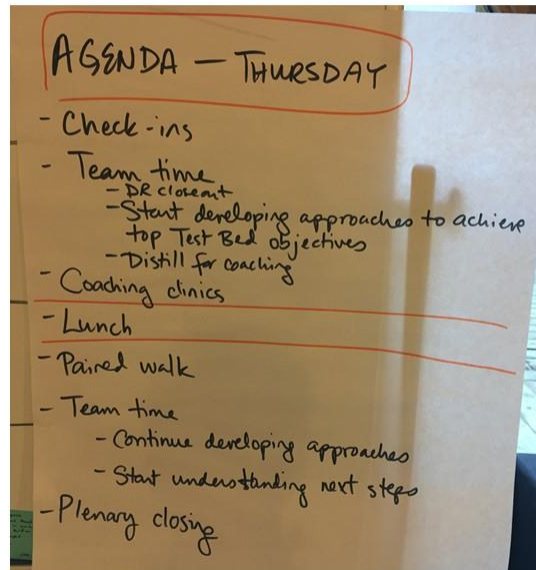 AGENDA — THURSDAY
- Check-ins
- Team time
- DR closeout
- Start developing approaches to achieve
top Test Bed objectives
- Distill for coaching
- Coaching clinics
- Lunch
- Paired walk
- Team time
- Continue developing approaches
- Start understanding next steps
- Plenary closing